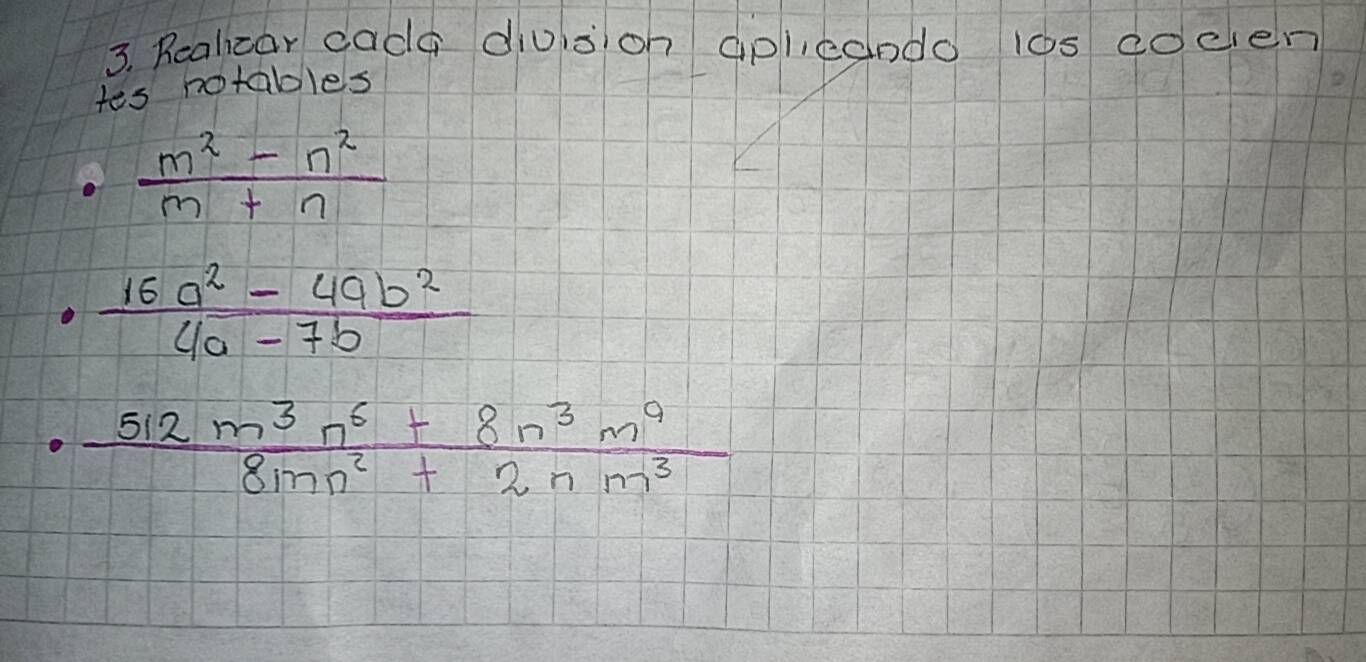 3. Realizar cada division aplicando los cocien
tes notables
• m² - n²
m + n
• 16a² - 49b²
4a - 7b
• 512 m³ n⁶ + 8 n³ m⁹
8mn² + 2 n m³